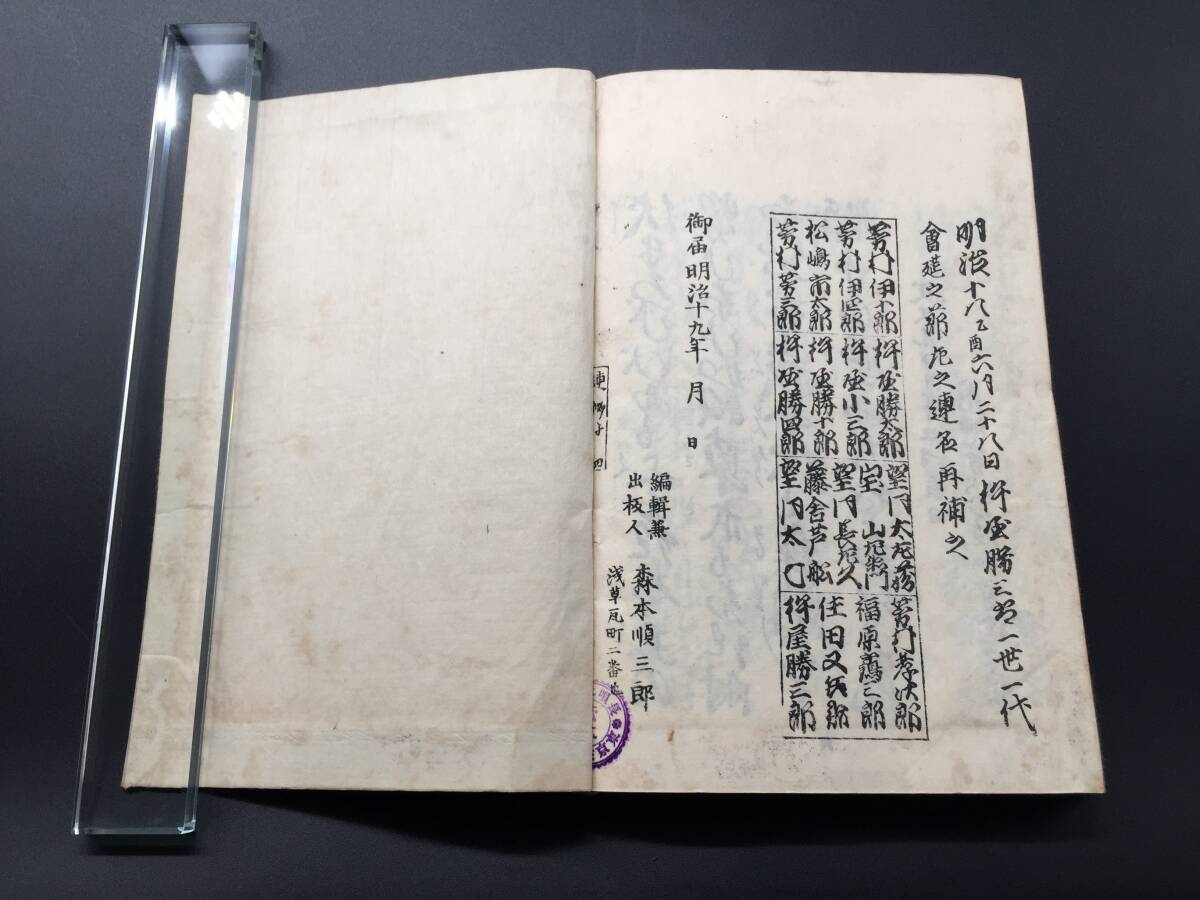 明治十八乙酉六月二十八日杵屋勝三郎一世一代
會莚之節左之連名再補之
芳村伊十郎
芳村伊四郎
松嶋市太郎
芳村芳三郎
杵屋勝太郎
杵屋小三郎
杵屋勝十郎
杵屋勝四郎
望月太左衛
宝山左衛門
望月長左久
藤舎芦船
望月太
芳村孝次郎
福原鶴三郎
住田又
杵屋勝三郎
御届明治十九年 月 日
編輯兼
出板人
森本順三郎
浅草瓦町二番地
連獅子 四